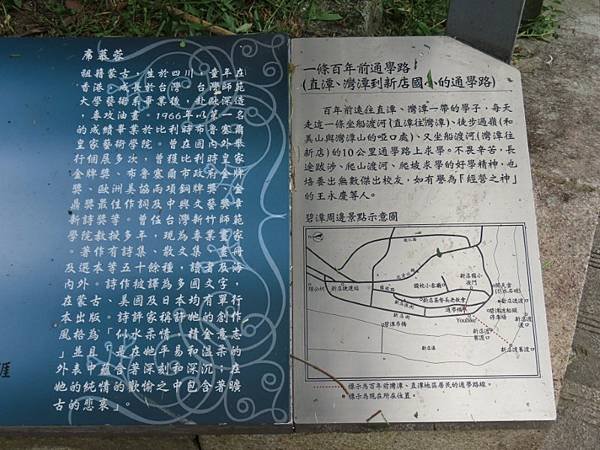 席慕蓉
祖籍蒙古，生於四川，童年在
香港，成長於台灣。台灣師範
大學藝術系畢業後，赴歐深造
，專攻油畫。1966年以第一名
的成績畢業於比利時布魯塞爾
皇家藝術學院。曾在國內外舉
行個展多次，曾獲比利時皇家
金牌獎、布魯塞爾市政府金牌
獎、歐洲美協兩項銅牌獎、金
鼎獎最佳作詞及中興文藝獎章
新詩獎等。曾任台灣新竹師範
學院教授多年，現為專業畫家
。著作有詩集、散文集、畫冊
及選本等五十餘種，讀者遍及海
內外。詩作被譯為多國文字，
在蒙古、美國及日本均有單行
本出版。詩評家稱許她的創作
風格為「似水柔情，精金意志
」並且「是在她平易和溫柔的
外表中蘊含著深刻和深沉；在
她的純情的歡愉之中包含著曠
古的悲哀」。
涯
一條百年前通學路
(直潭、灣潭到新店國小的通學路)
百年前遠住直潭、灣潭一帶的學子，每天
走這一條坐船渡河(直潭往灣潭)、徒步過嶺(和
美山與灣潭山的啞口處)、又坐船渡河(灣潭往
新店)的10公里通學路上求學。不畏辛苦，長
途跋涉、爬山渡河、爬坡求學的好學精神，也
培養出無數傑出校友，如有譽為「經營之神」
的王永慶等人。
碧潭周邊景點示意圖
新店捷運站
新店國小
後門
開天宮
新店路
碧潭吊橋
通學橋
Youbike
碧潭渡船頭
停車場
新店溪
標示為百年前灣潭、直潭地區居民的通學路線。
標示為現在所在位置。